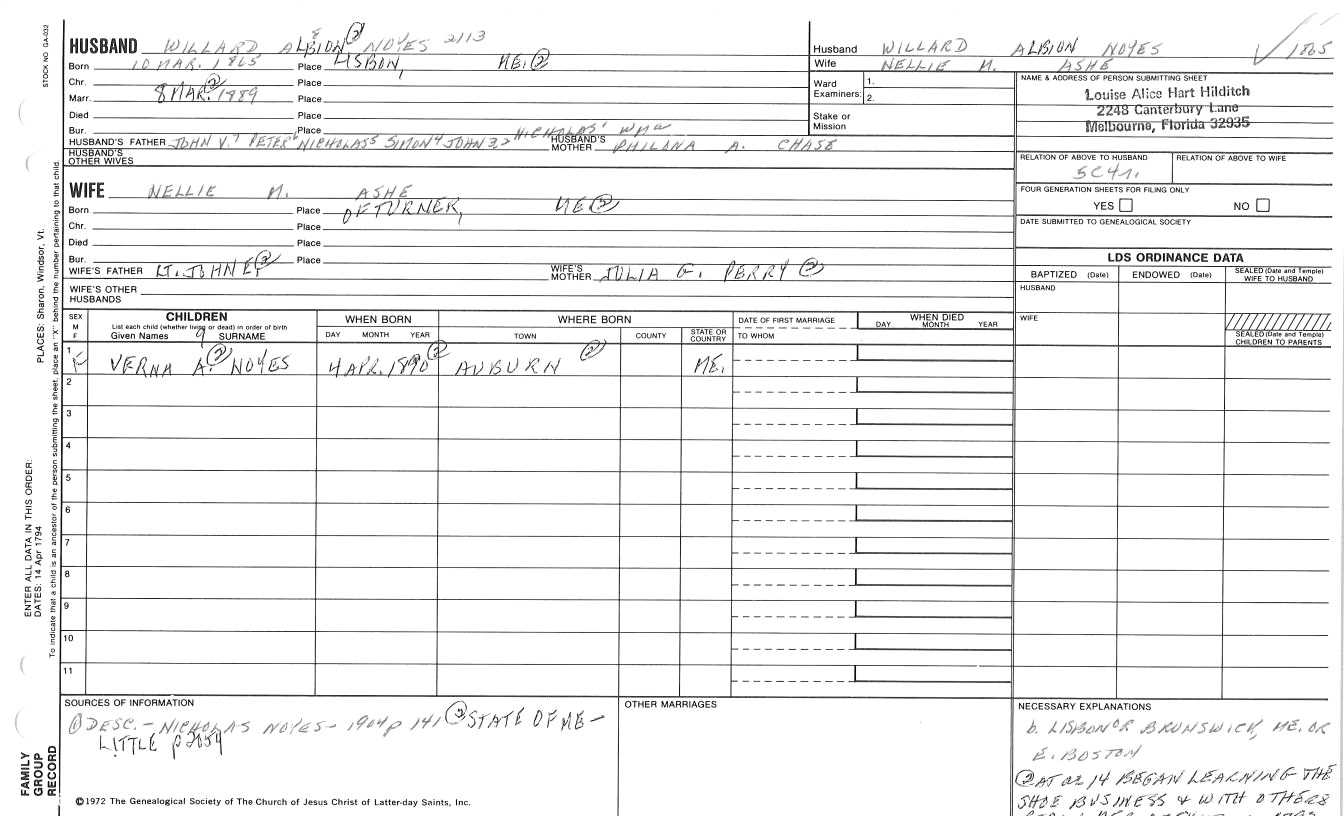 STOCK NO GA-032
HUSBAND WILLARD ALBION 8 ② NOYES 2113
Born 10 MAR. 1865 Place LISBON, ME. ②
Chr. Place
Marr. 8 MAR. ② 1889 Place
Died Place
Bur. Place
HUSBAND'S FATHER JOHN V.7 PETER6 NICHOLAS5 SIMON4 JOHN 3,2 NICHOLAS1 WMa HUSBAND'S MOTHER PHILANA A. CHASE
HUSBAND'S OTHER WIVES
WIFE NELLIE M. ASHE
Born Place OF TURNER, ME ②
Chr. Place
Died Place
Bur. Place
WIFE'S FATHER LT. JOHN E. ② WIFE'S MOTHER JULIA G. PERRY ②
WIFE'S OTHER HUSBANDS
Husband WILLARD ALBION NOYES 1865
Wife NELLIE M. ASHE
Ward Examiners: 1.
2.
Stake or Mission
NAME & ADDRESS OF PERSON SUBMITTING SHEET
Louise Alice Hart Hilditch
2248 Canterbury Lane
Melbourne, Florida 32935
RELATION OF ABOVE TO HUSBAND RELATION OF ABOVE TO WIFE
5C4r.
FOUR GENERATION SHEETS FOR FILING ONLY
YES NO
DATE SUBMITTED TO GENEALOGICAL SOCIETY
LDS ORDINANCE DATA
BAPTIZED (Date) ENDOWED (Date) SEALED (Date and Temple) WIFE TO HUSBAND
HUSBAND
WIFE
SEALED (Date and Temple) CHILDREN TO PARENTS
SEX M F
CHILDREN
List each child (whether living or dead) in order of birth
Given Names 9 SURNAME
WHEN BORN
DAY MONTH YEAR
WHERE BORN
TOWN COUNTY STATE OR COUNTRY
DATE OF FIRST MARRIAGE
TO WHOM
WHEN DIED
DAY MONTH YEAR
1 F VERNA A. ② NOYES 4 APR. 1890 ② AUBURN ② ME.
2
3
4
5
6
7
8
9
10
11
PLACES: Sharon, Windsor, Vt.
ENTER ALL DATA IN THIS ORDER:
DATES: 14 Apr 1794
To indicate that a child is an ancestor of the person submitting the sheet, place an "X" behind the number pertaining to that child.
FAMILY GROUP RECORD
SOURCES OF INFORMATION
① DESC. - NICHOLAS NOYES - 1904 p 141 ② STATE OF ME -
LITTLE p 2059
©1972 The Genealogical Society of The Church of Jesus Christ of Latter-day Saints, Inc.
OTHER MARRIAGES
NECESSARY EXPLANATIONS
b. LISBON OR BRUNSWICK, ME. OR
E. BOSTON
② AT 14 BEGAN LEARNING THE
SHOE BUSINESS & WITH OTHERS